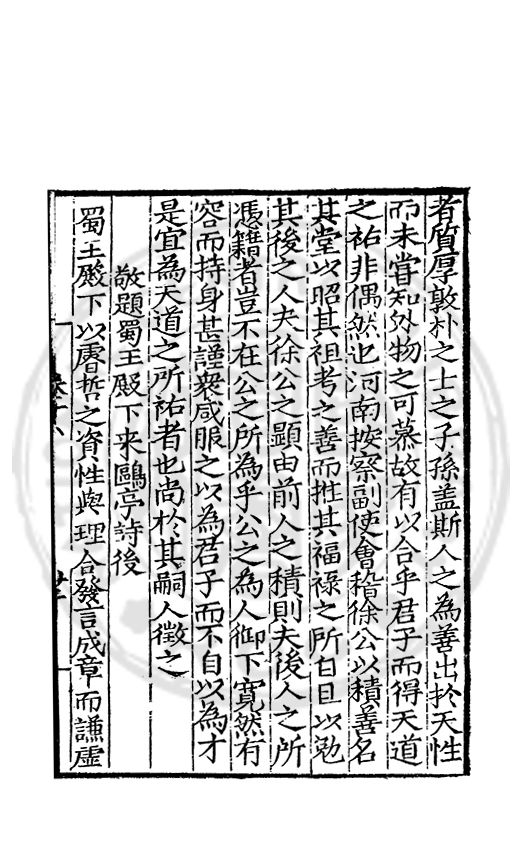 者質厚敦朴之士之子孫盖斯人之為善出扵天性
而未嘗知外物之可慕故有以合乎君子而得天道
之祐非偶然也河南按察副使會稽徐公以積善名
其堂以昭其祖考之善而推其福禄之所自且以勉
其後之人夫徐公之顯由前人之積則夫後人之所
憑籍者豈不在公之所為乎公之為人御下寛然有
容而持身甚謹衆咸服之以為君子而不自以為才
是宜為天道之所祐者也尚扵其嗣人徵之
敬題蜀王殿下来鷗亭詩後
蜀王殿下以睿哲之資性與理合發言成章而謙虚